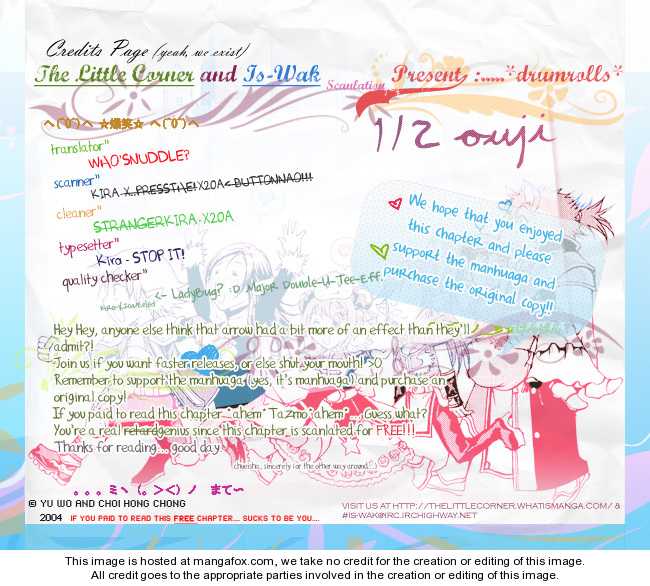 Credits Page (yeah, we exist)
The Little Corner and Is-Wak Scanlation Present, :.....*drumrolls*
1/2 ouji
ヘ(^0^)ヘ ☆爆笑☆ ヘ(^0^)ヘ
translator"
WHO'SNUDDLE?
scanner"
KIRA X..PRESSTHE! X20A< BUTTONNAO!!!
cleaner"
STRANGERKIRA-X20A
typesetter"
Kira - STOP IT!
quality checker"
<- LadyBug? :D Major Double-U-Tee-Eff.
We hope that you enjoyed
this chapter and please
support the manhuaga and
purchase the original copy!!
Hey Hey, anyone else think that arrow had a bit more of an effect than they'll
admit?!
Join us if you want faster releases, or else shut your mouth! >O
Remember to support the manhuaga (yes, it's manhuaga) and purchase an
original copy!
If you paid to read this chapter...ahem* Tazmo*ahem*....Guess what?
You're a real retardgenius since this chapter is scanlated for FREE!!!
Thanks for reading.... good day.
。。。ミヽ(。><)ノ まて~
© YU WO AND CHOI HONG CHONG
2004 IF YOU PAID TO READ THIS FREE CHAPTER... SUCKS TO BE YOU...
VISIT US AT HTTP://THELITTLECORNER.WHATISMANGA.COM/ &
#IS-WAK@IRC.IRCHIGHWAY.NET
This image is hosted at mangafox.com, we take no credit for the creation or editing of this image.
All credit goes to the appropriate parties involved in the creation or editing of this image.